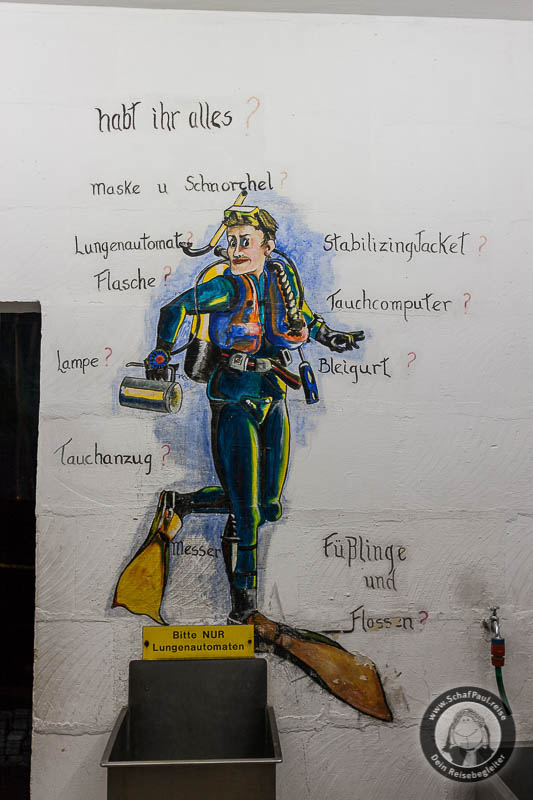 habt ihr alles?
maske u Schnorchel?
Lungenautomat?
StabilizingJacket ?
Flasche?
Tauchcomputer ?
Lampe?
Bleigurt ?
Tauchanzug ?
Messer
Füßlinge
und
Flossen?
Bitte NUR
Lungenautomaten
www.SchafPaul.reise
Dein Reisebegleiter